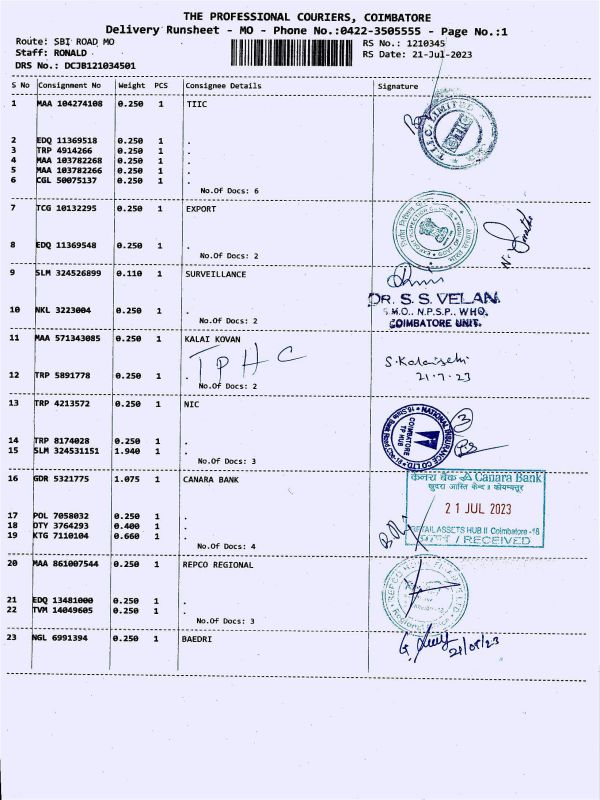 THE PROFESSIONAL COURIERS, COIMBATORE
Delivery Runsheet - MO - Phone No.:0422-3505555 - Page No.:1
Route: SBI ROAD MO
RS No.: 1210345
Staff: RONALD
RS Date: 21-Jul-2023
DRS No.: DCJB121034501
S No Consignment No Weight PCS Consignee Details Signature
1 MAA 104274108 0.250 1 TIIC
T.I.I.C. LIMITED
2 EDQ 11369518 0.250 1 .
3 TRP 4914266 0.250 1 .
4 MAA 103782268 0.250 1 .
5 MAA 103782266 0.250 1 .
6 CGL 50075137 0.250 1 .
No.Of Docs: 6
7 TCG 10132295 0.250 1 EXPORT
8 EDQ 11369548 0.250 1 .
No.Of Docs: 2
9 SLM 324526899 0.110 1 SURVEILLANCE
DR. S. S. VELAN
S.M.O.. N.P.S.P.. WHO.
COIMBATORE UNIT.
10 NKL 3223004 0.250 1 .
No.Of Docs: 2
11 MAA 571343085 0.250 1 KALAI KOVAN
TPHC
S. Kalaiselvi
21.7.23
12 TRP 5891778 0.250 1 .
No.Of Docs: 2
13 TRP 4213572 0.250 1 NIC
NATIONAL INSURANCE CO LTD
COIMBATORE
TP HUB
3
14 TRP 8174028 0.250 1 .
15 SLM 324531151 1.940 1 .
No.Of Docs: 3
16 GDR 5321775 1.075 1 CANARA BANK
केनरा बैंक Canara Bank
खुदरा आस्ति केन्द्र II कोयम्बत्तूर
21 JUL 2023
RETAIL ASSETS HUB II Coimbatore -18
/ RECEIVED
17 POL 7058032 0.250 1 .
18 OTY 3764293 0.400 1 .
19 KTG 7110104 0.660 1 .
No.Of Docs: 4
20 MAA 861007544 0.250 1 REPCO REGIONAL
21 EDQ 13481000 0.250 1 .
22 TVM 14049605 0.250 1 .
No.Of Docs: 3
23 NGL 6991394 0.250 1 BAEDRI